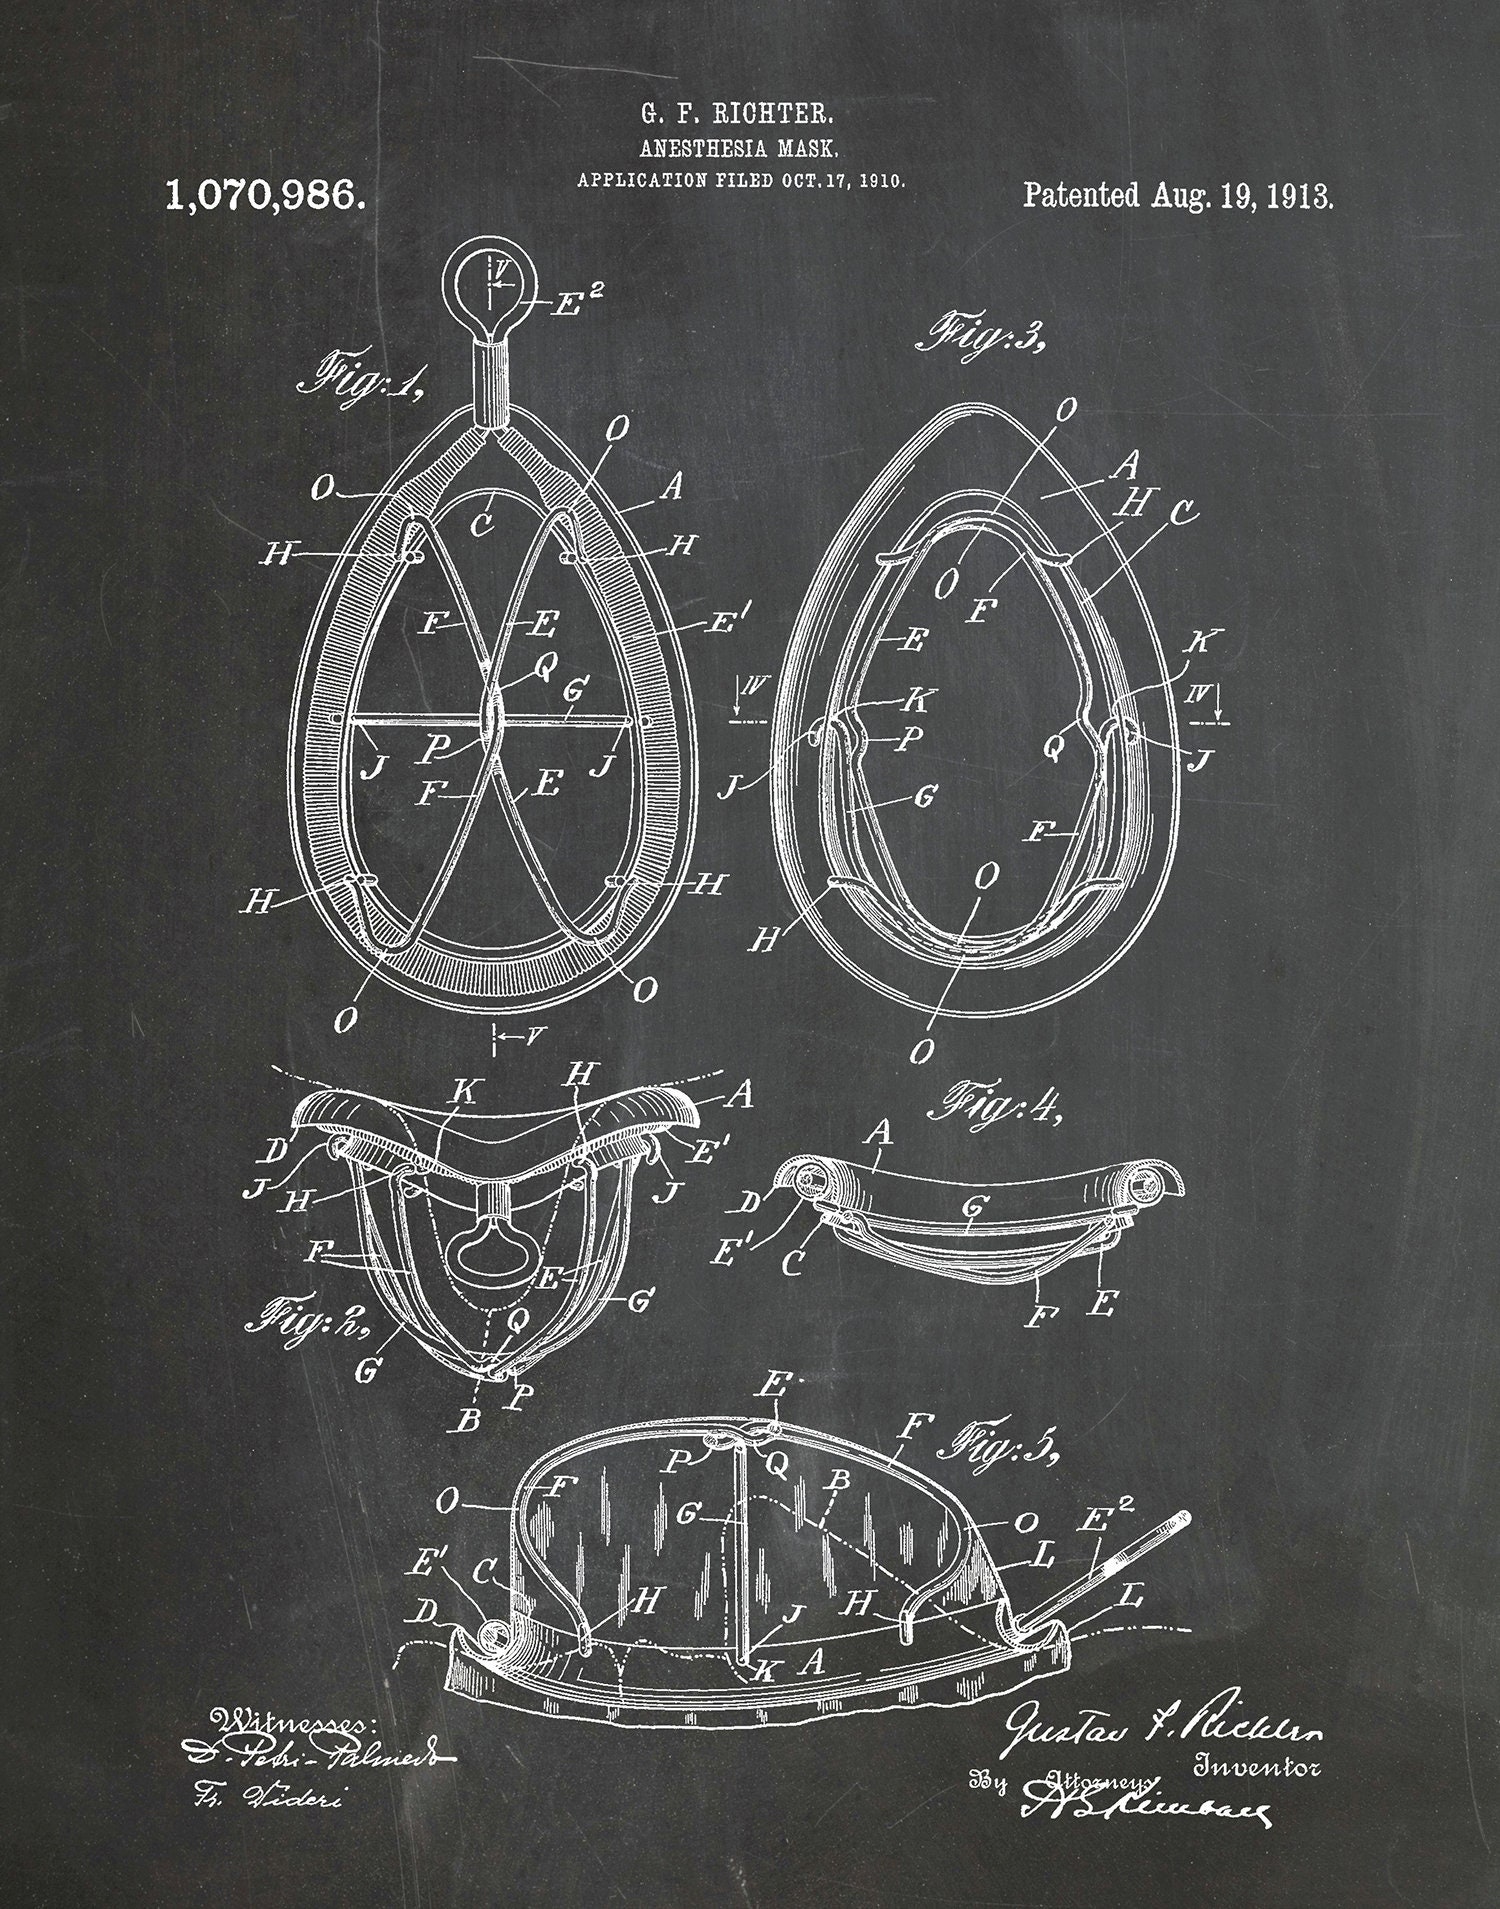 G. F. RICHTER.
ANESTHESIA MASK.
APPLICATION FILED OCT. 17, 1910.
1,070,986.
Patented Aug. 19, 1913.
Fig: 1,
V
E²
O
O
A
C
H
H
F
E
E'
Q
G
P
J
J
F
E
H
H
O
O
V
Fig: 3,
O
A
H
C
O
F
E
K
IV
IV
K
P
Q
J
J
G
F
O
H
O
Fig: 2,
K
H
A
D
E'
J
H
J
F
E
G
Q
G
P
B
Fig: 4,
A
D
G
E'
C
E
F
Fig: 5,
E
F
P
Q
B
O
F
G
O
E²
L
E'
C
H
J
H
L
D
K
A
Witnesses:
D. Petri-Palmedo
Fr. Videri
Gustav F. Richter
Inventor
By Attorneys